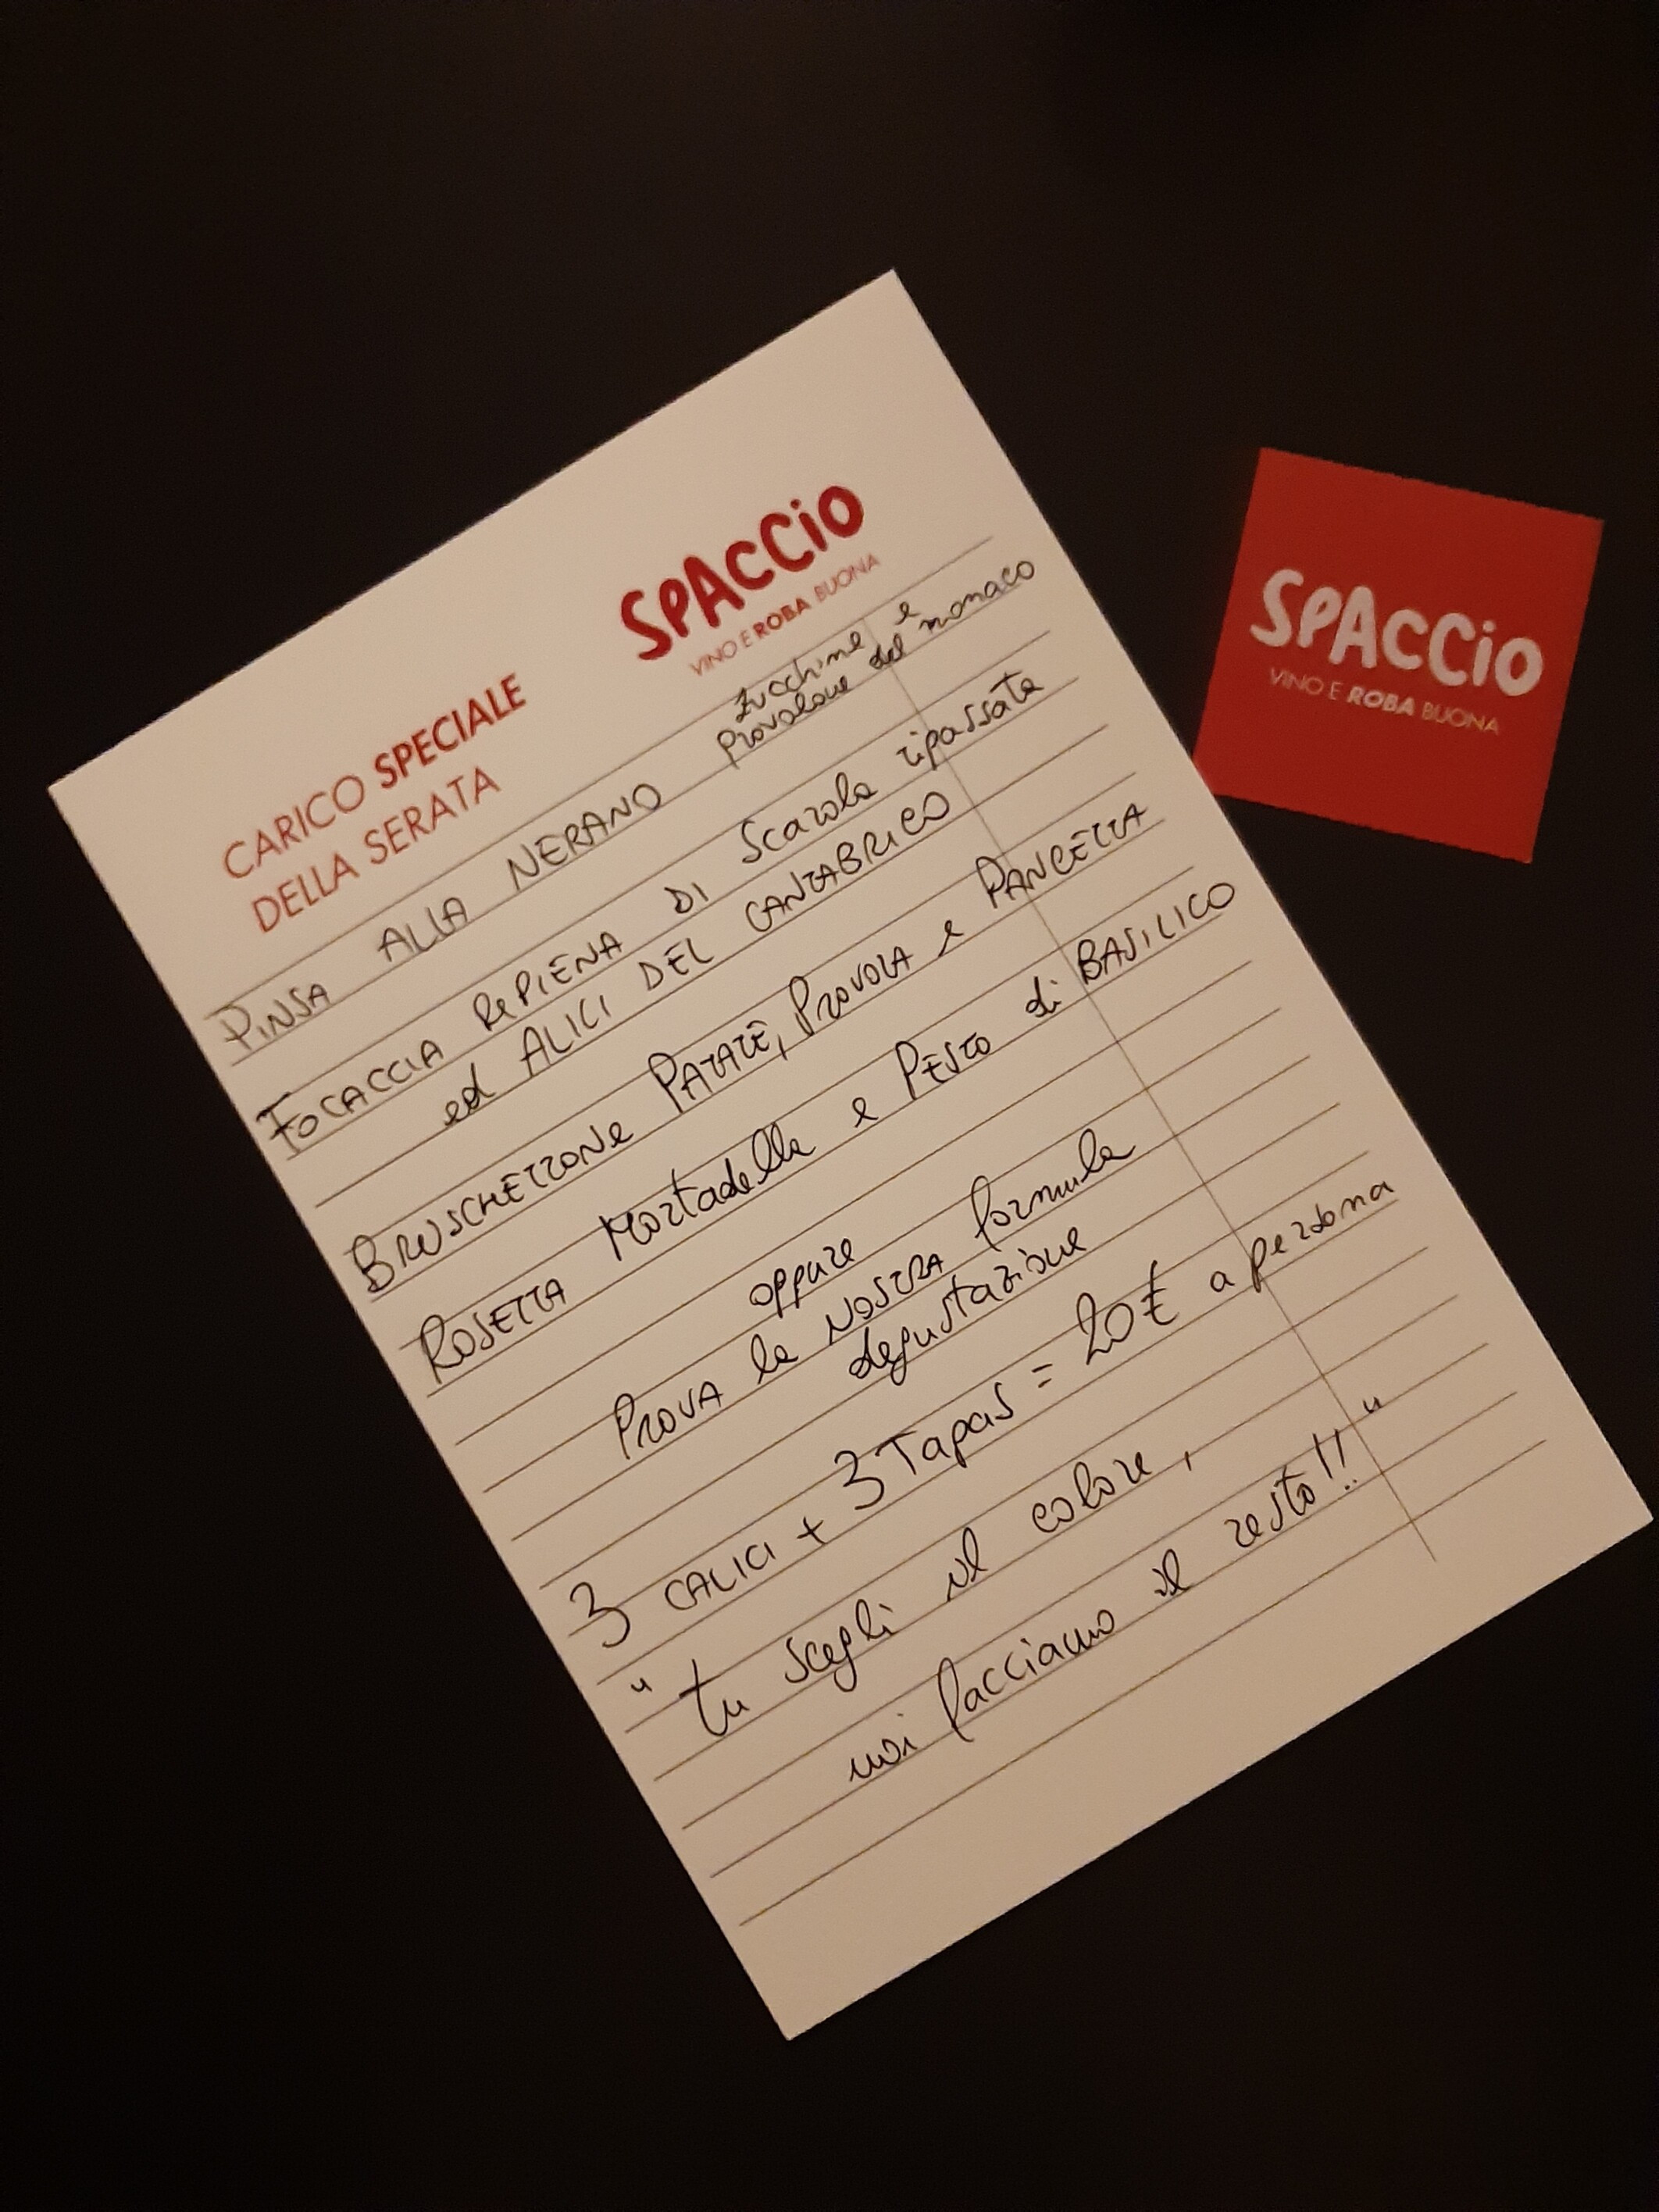 CARICO SPECIALE
DELLA SERATA
SPACCiO
VINO E ROBA BUONA
PINSA ALLA NERANO zucchine e
provolone del monaco
FOCACCIA RePIENA DI Scarola ripassata
ed ALICI DEL CANTABRICO
BRUSCHETTONe PATATE, PROVOLA e PANCETTA
ROSETTA Mortadella e PESTO di BASILICO
oppure
PROVA la NOSTRA formula
degustazione
3 CALICI + 3 Tapas = 20€ a persona
" tu scegli il colore,
noi facciamo il resto!! "
SPACCiO
VINO E ROBA BUONA